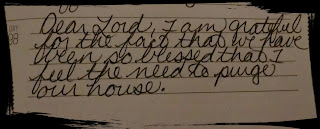 Dear Lord, I am grateful
for the fact that we have
been so blessed that I
feel the need to purge
our house.